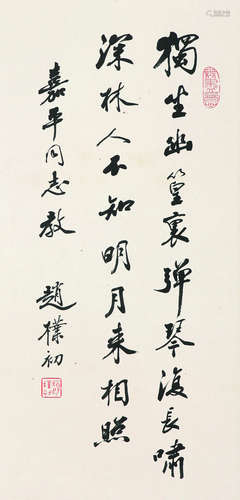 獨坐幽篁裏彈琴復長嘯
深林人不知明月来相照
嘉平同志教
趙樸初